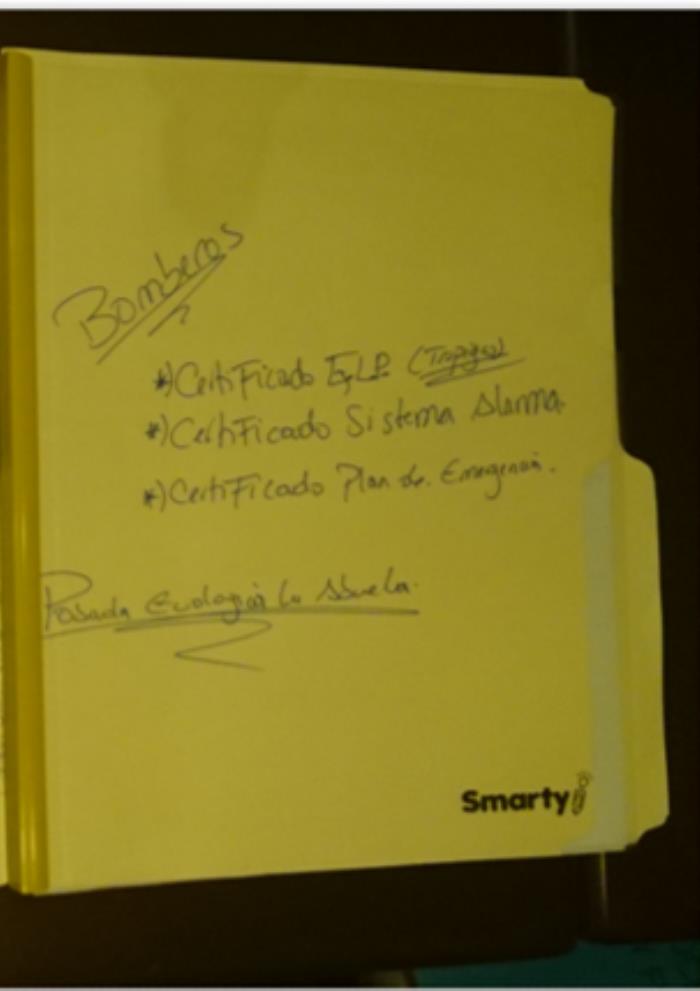 Bomberos
*) Certificado G.L.P. (Tropigas)
*) Certificado Sistema Alarma.
*) Certificado Plan de. Emergencia.
Posada Ecologica la Abuela.
Smarty